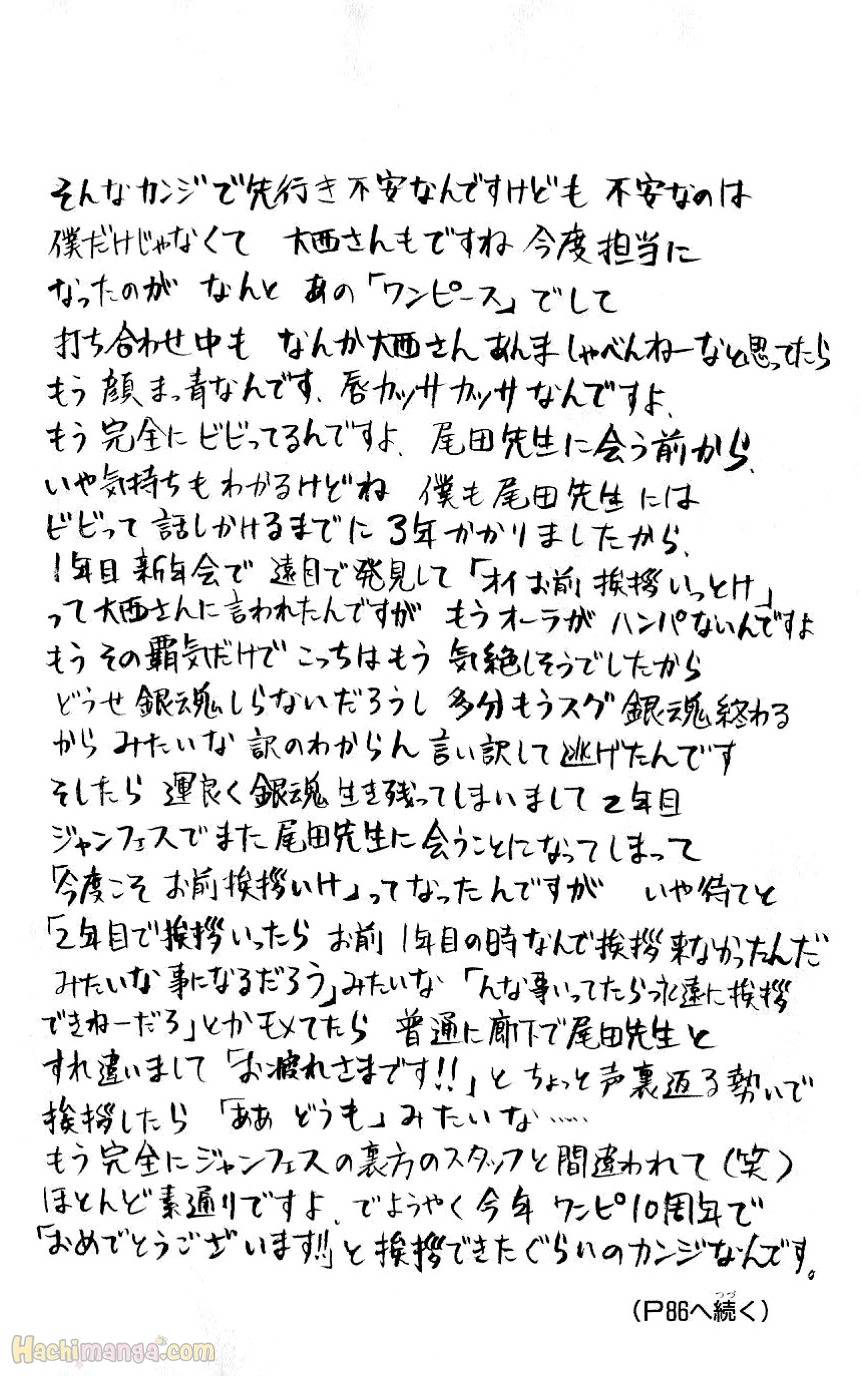 そんなカンジで先行き不安なんですけども 不安なのは
僕だけじゃなくて 大西さんもですね 今度担当に
なったのが なんと あの「ワンピース」でして
打ち合わせ中も なんか大西さんあんましゃべんねーなと思ってたら
もう顔まっ青なんです、唇カッサカッサなんですよ、
もう完全にビビってるんですよ、尾田先生に会う前から、
いや気持ちもわかるけどね 僕も尾田先生には
ビビって話しかけるまでに3年かかりましたから、
1年目新年会で 遠目で発見して「オイお前 挨拶いっとけ」
って大西さんに言われたんですが もうオーラがハンパないんですよ
もうその覇気だけで こっちはもう 気絶しそうでしたから
どうせ銀魂しらないだろうし 多分もうスグ銀魂終わる
から みたいな 訳のわからん言い訳して逃げたんです
そしたら 運良く銀魂生き残ってしまいまして 2年目
ジャンフェスでまた尾田先生に会うことになってしまって
「今度こそ お前挨拶いけ」ってなったんですが いや待てと
「2年目で挨拶いったら お前 1年目の時なんで挨拶来なかったんだ
みたいな事になるだろう」みたいな「んな事いってたら永遠に挨拶
できねーだろ」とかモメてたら 普通に廊下で尾田先生と
すれ違いまして「お疲れさまです!!」と ちょっと声裏返る勢いで
挨拶したら 「ああ どうも」みたいな……
もう完全にジャンフェスの裏方のスタッフと間違われて(笑)
ほとんど素通りですよ、でようやく今年 ワンピ10周年で
「おめでとうございます!!」と挨拶できたぐらいのカンジなんです。
(P86へ続く)
つづ
Hachimanga.com